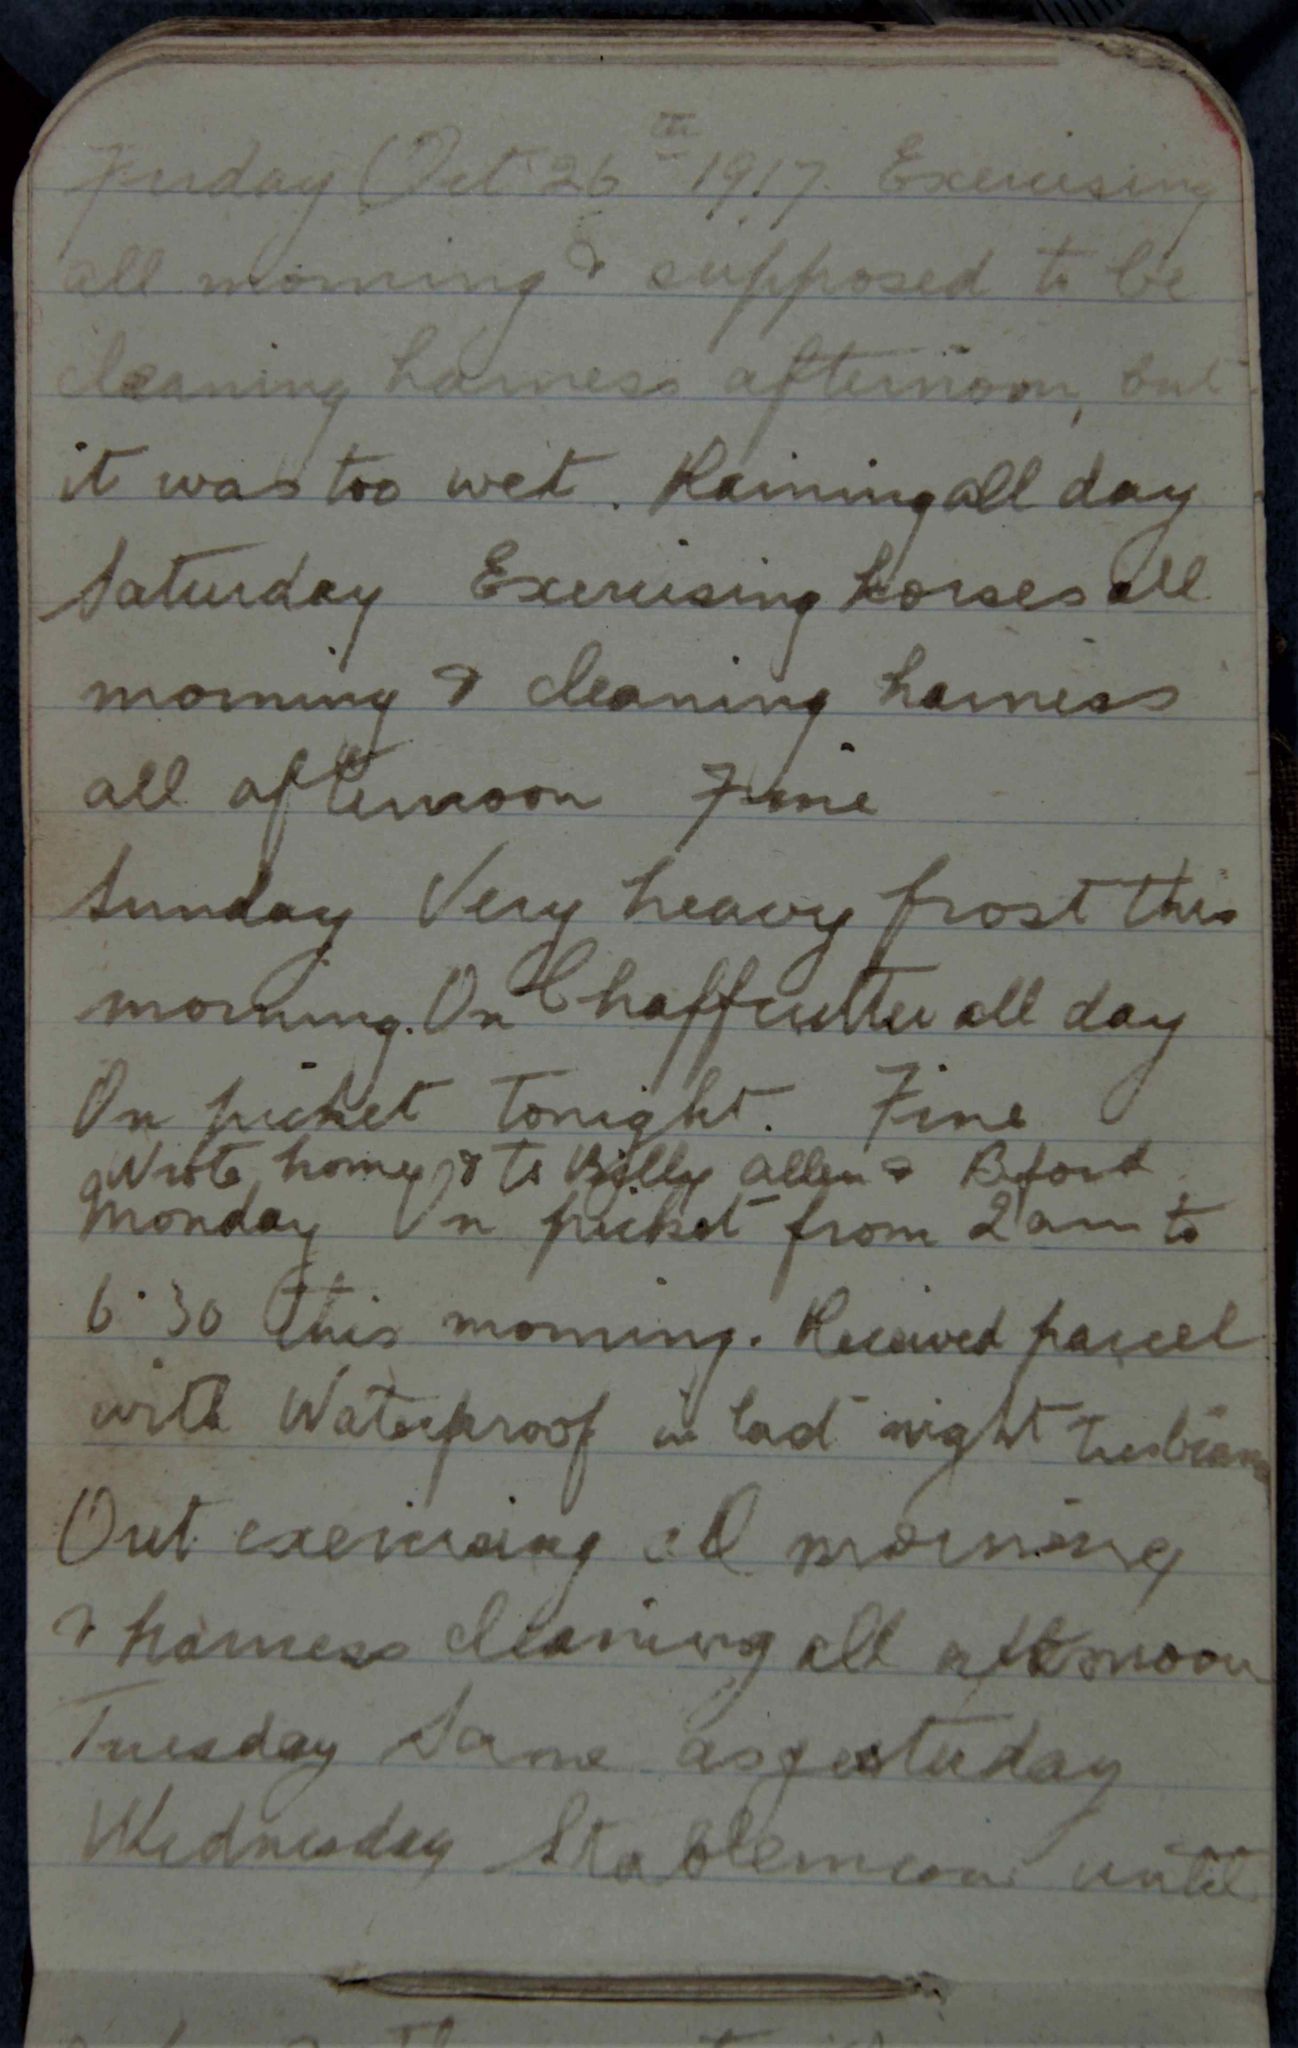 Friday Oct 26th 1917. Exercising
all morning & supposed to be
cleaning harness afternoon, but
it was too wet. Raining all day
Saturday Exercising horses all
morning & cleaning harness
all afternoon Fine
Sunday Very heavy frost this
morning. On Chaffcutter all day
On picket tonight. Fine
Wrote home & to Billy Allen &
Monday On picket from 2 am to
6.30 this morning. Received parcel
with Waterproof in last night
Out exercising all morning
& harness cleaning all afternoon
Tuesday Same as yesterday
Wednesday Stableman until